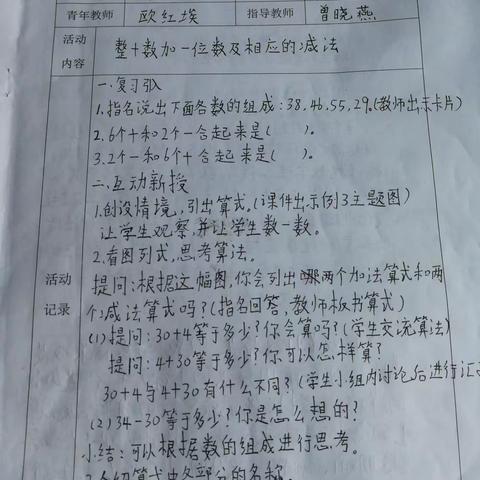 青年教师 欧红埃 指导教师 曾晓燕
活动内容 整十数加一位数及相应的减法
活动记录
一.复习引入
1.指名说出下面各数的组成:38.46.55.29.(教师出示卡片)
2.6个十和2个一合起来是( )。
3.2个一和6个十合起来是( )。
二.互动新授
1.创设情境,引出算式。(课件出示例3主题图)
让学生观察,并让学生数一数。
2.看图列式,思考算法。
提问:根据这幅图,你会列出哪两个加法算式和两
个减法算式吗?(指名回答,教师板书算式)
(1)提问:30+4等于多少?你会算吗?(学生交流算法)
提问:4+30等于多少?你可以怎样算?
30+4与4+30有什么不同?(学生小组内讨论后进行汇
(2)34-30等于多少?你是怎么想的?
小结:可以根据数的组成进行思考。
3.介绍算式中各部分的名称。